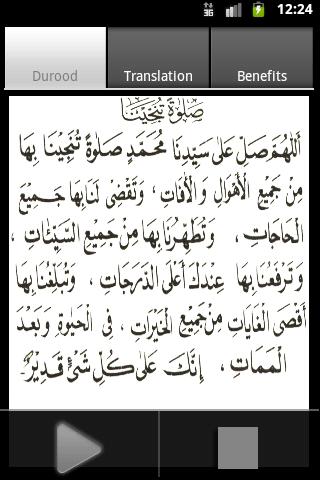 3G 12:24
Durood Translation Benefits
صَلٰوةُ تُنَجِّيْنَا
اَللّٰهُمَّ صَلِّ عَلٰى سَيِّدِنَا مُحَمَّدٍ صَلٰوةً تُنَجِّيْنَا بِهَا
مِنْ جَمِيْعِ الْاَهْوَالِ وَالْاٰفَاتِ، وَتَقْضِىْ لَنَا بِهَا جَمِيْعَ
الْحَاجَاتِ، وَتُطَهِّرُنَا بِهَا مِنْ جَمِيْعِ السَّيِّئَاتِ،
وَتَرْفَعُنَا بِهَا عِنْدَكَ اَعْلَى الدَّرَجَاتِ، وَتُبَلِّغُنَا بِهَا
اَقْصَى الْغَايَاتِ مِنْ جَمِيْعِ الْخَيْرَاتِ، فِى الْحَيٰوةِ وَبَعْدَ
الْمَمَاتِ، اِنَّكَ عَلٰى كُلِّ شَىْءٍ قَدِيْرٌ